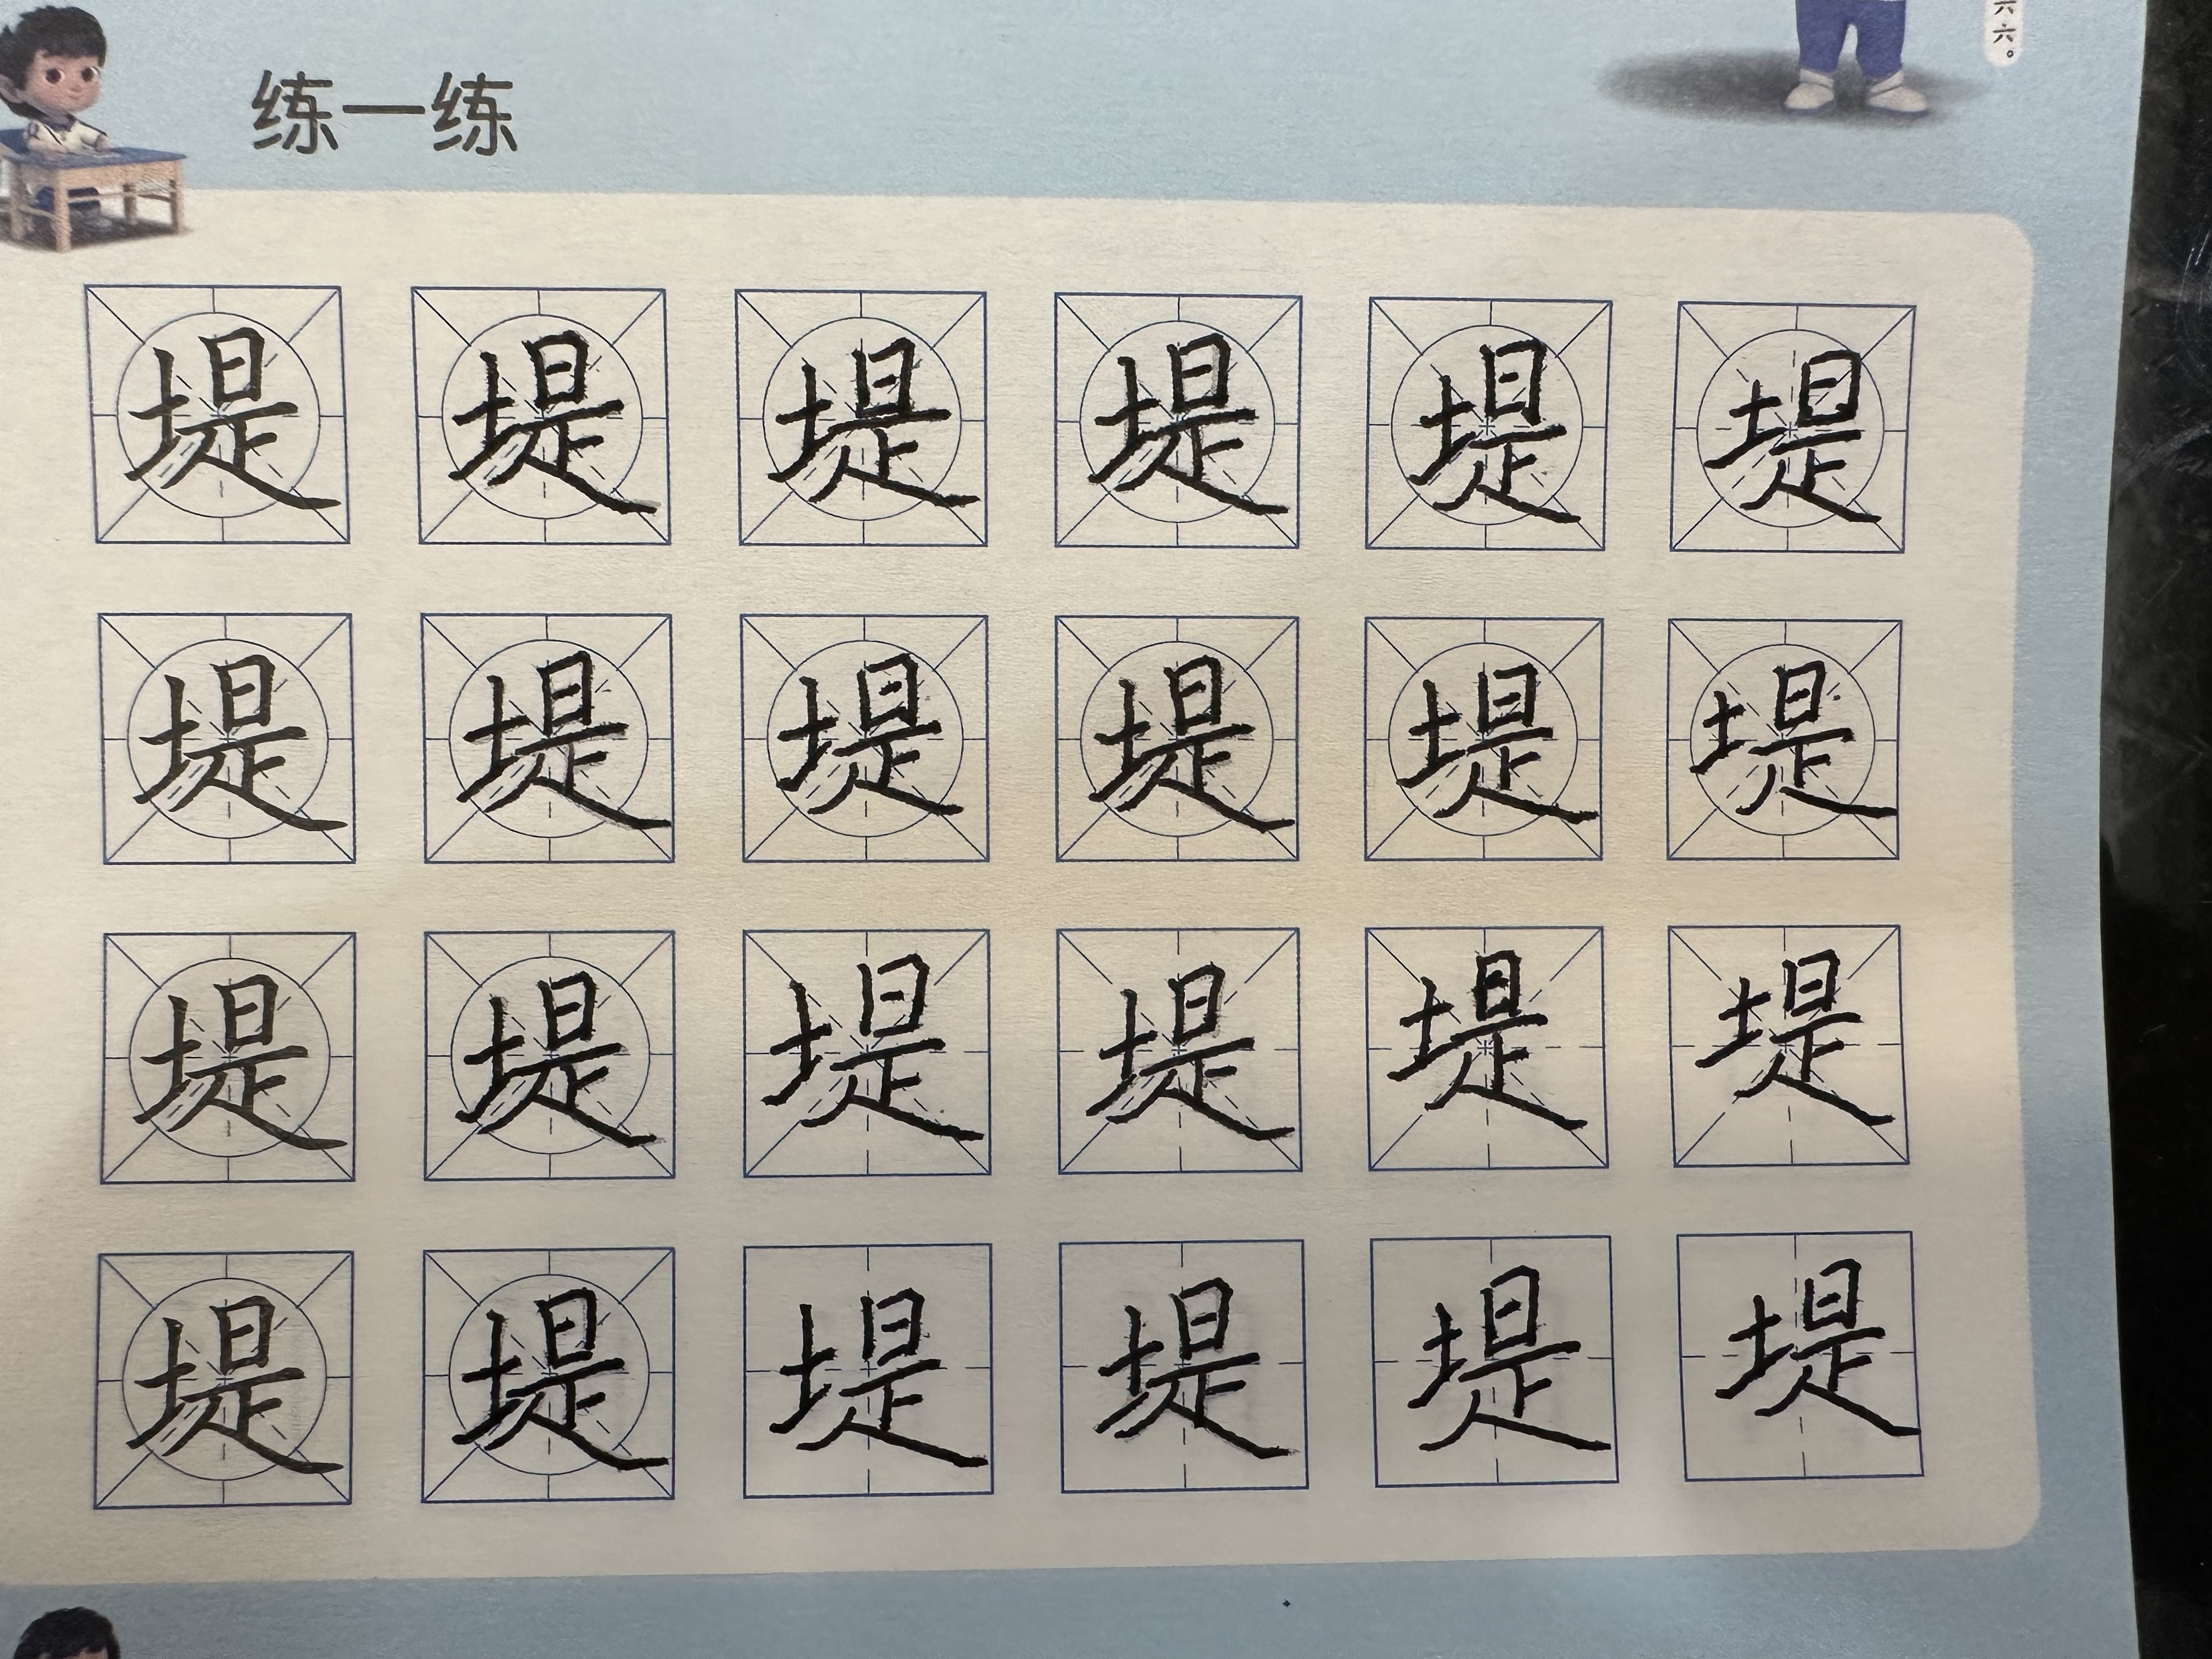 六六。
练一练
堤 堤 堤 堤 堤 堤
堤 堤 堤 堤 堤 堤
堤 堤 堤 堤 堤 堤
堤 堤 堤 堤 堤 堤